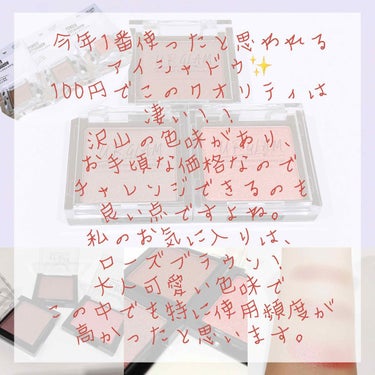 今年1番使ったと思われる
アイシャドウ✨
100円でこのクオリティは
凄い!!
沢山の色味があり、
お手頃な価格なので
チャレンジできるのも
良い点ですよね。
私のお気に入りは、
ローズブラウン!
大人可愛い色味で
この中でも特に使用頻度が
高かったと思います。